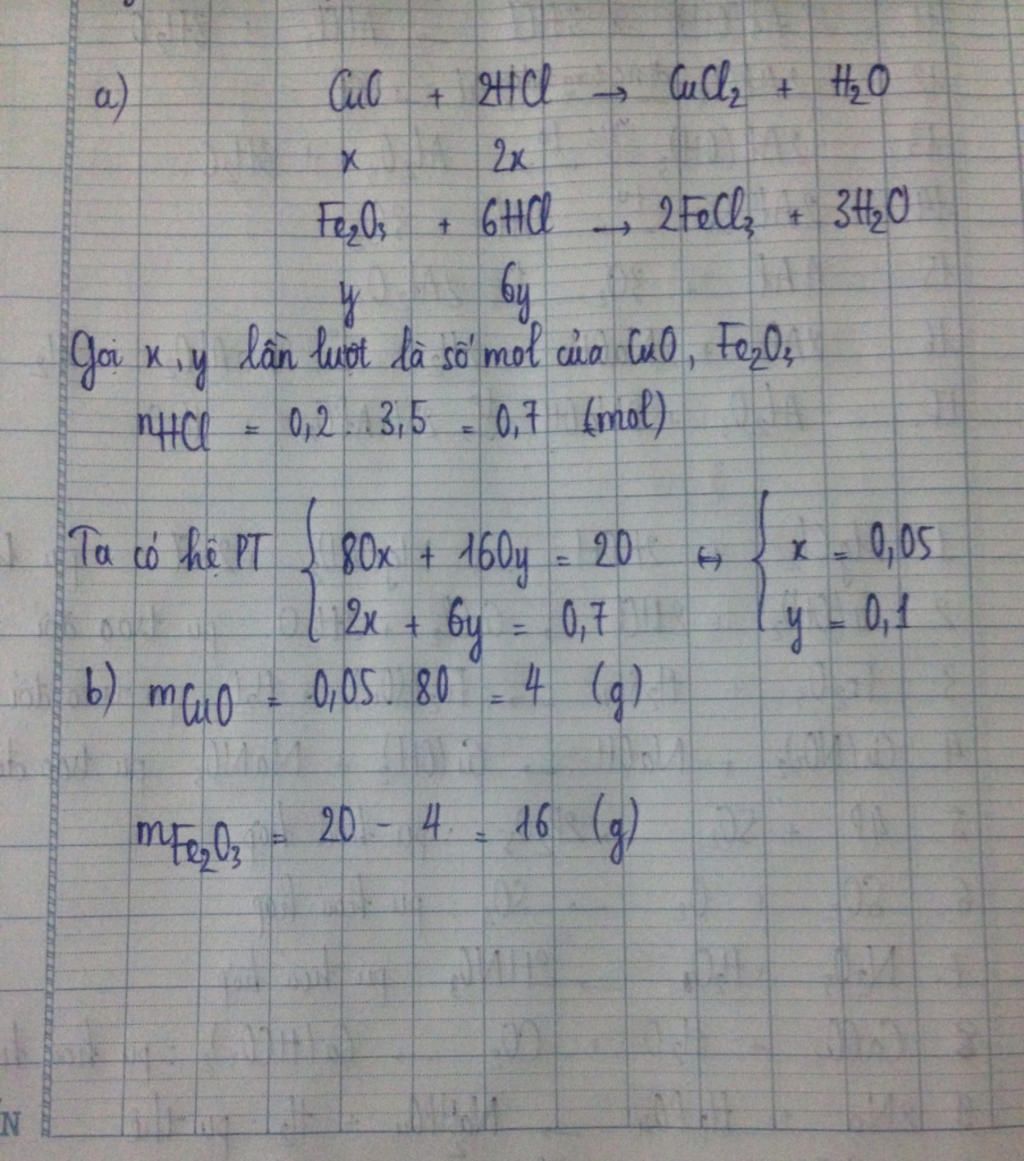 a) CuO + 2HCl → CuCl₂ + H₂O
x 2x
Fe₂O₃ + 6HCl → 2FeCl₃ + 3H₂O
y 6y
Gọi x, y lần lượt là số mol của CuO, Fe₂O₃
nHCl = 0,2 . 3,5 = 0,7 (mol)
Ta có hệ PT { 80x + 160y = 20 ↔ { x = 0,05
2x + 6y = 0,7 y = 0,1
b) mCuO = 0,05 . 80 = 4 (g)
mFe₂O₃ = 20 - 4 = 16 (g)
N